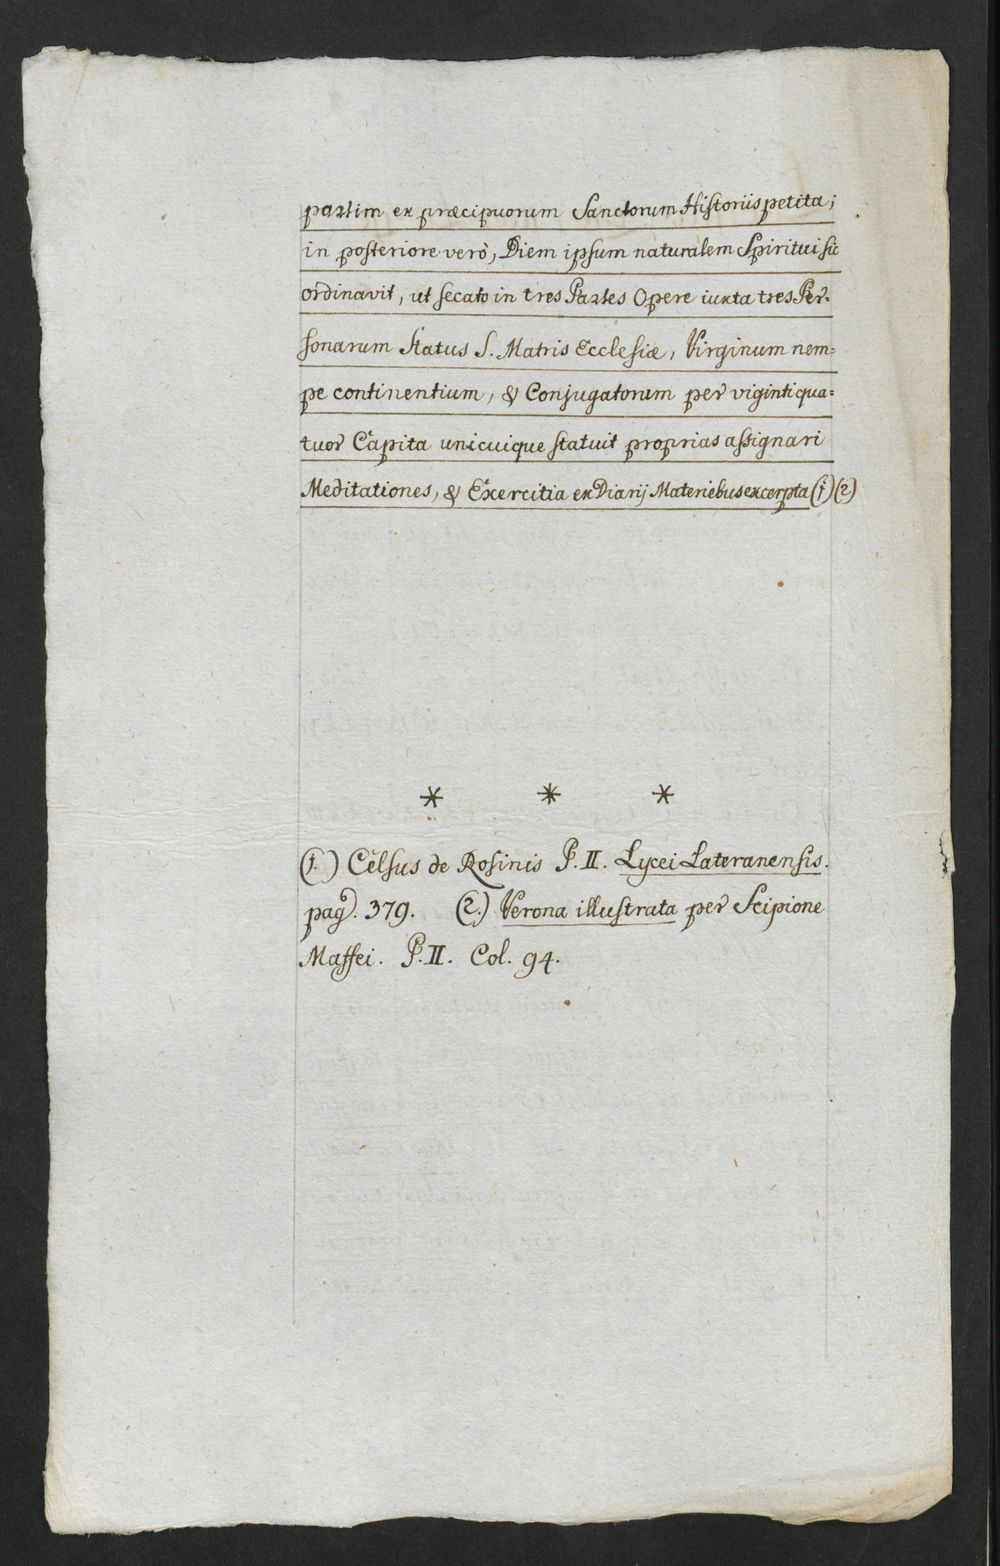 partim ex præcipuorum Sanctorum Historiis petita;
in posteriore verò, Diem ipsum naturalem Spiritui sic
ordinavit, ut secato in tres Partes Opere iuxta tres Per-
sonarum Status S. Matris Ecclesiæ, Virginum nem=
pe continentium, & Conjugatorum per viginti qua=
tuor Capita unicuique statuit proprias assignari
Meditationes, & Exercitia ex Diarij Materiebus excerpta (1) (2)
* * *
(1.) Celsus de Rosinis P. II. Lycei Lateranensis.
pag. 379. (2.) Verona illustrata per Scipione
Maffei. P. II. Col. 94.